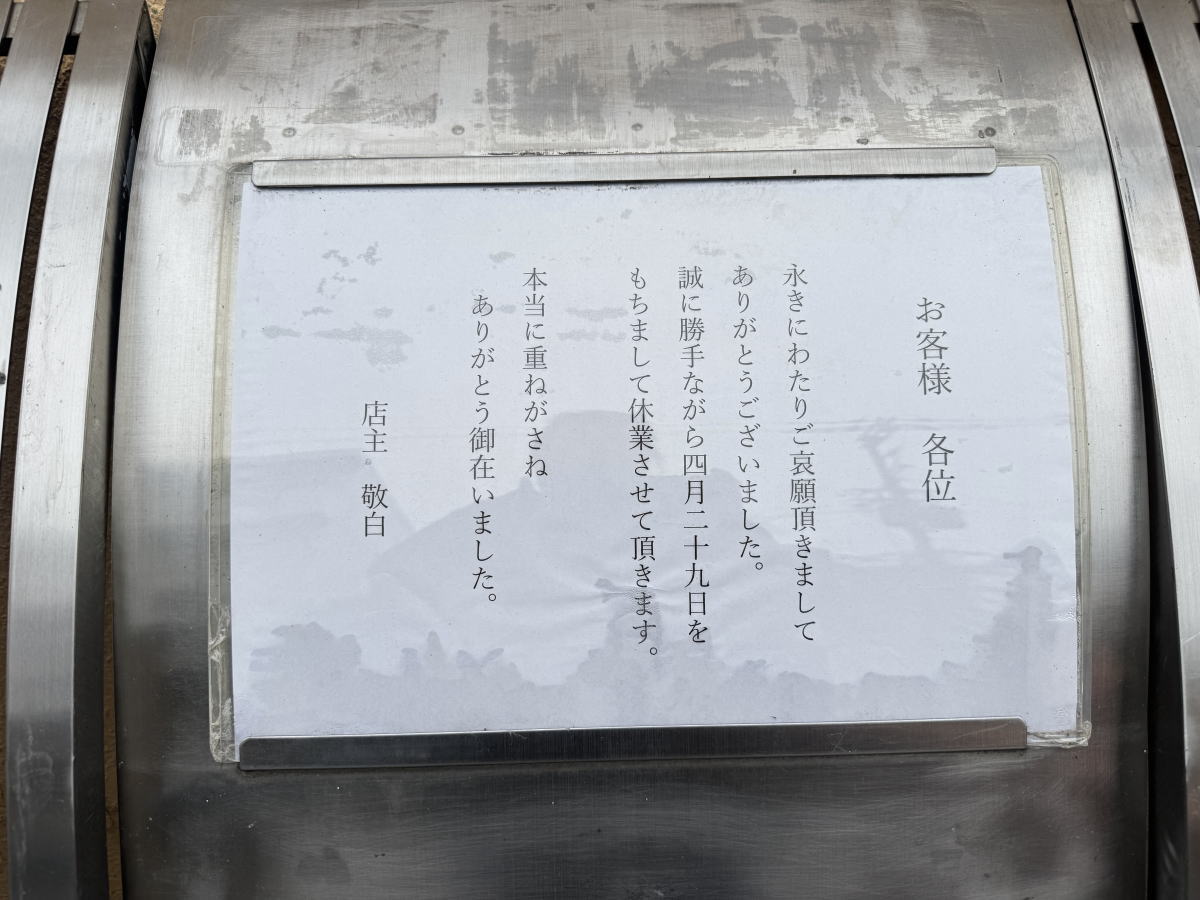 お客様　各位
永きにわたりご哀願頂きまして
ありがとうございました。
誠に勝手ながら四月二十九日を
もちまして休業させて頂きます。
本当に重ねがさね
ありがとう御在いました。
店主　敬白